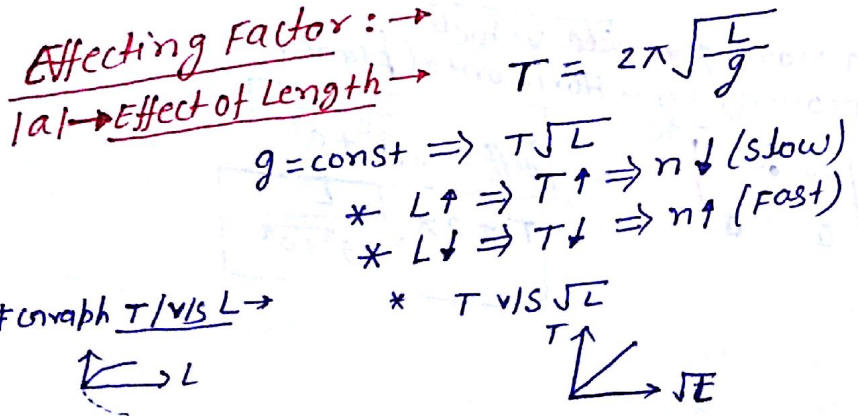 Effecting Factor :→
T = 2π√(L/g)
|a|→Effect of Length→
g = const ⇒ T√L
* L↑ ⇒ T↑ ⇒ n↓ (slow)
* L↓ ⇒ T↓ ⇒ n↑ (Fast)
* Graph T/v/s L→
* T v/s √L
L
T
√L